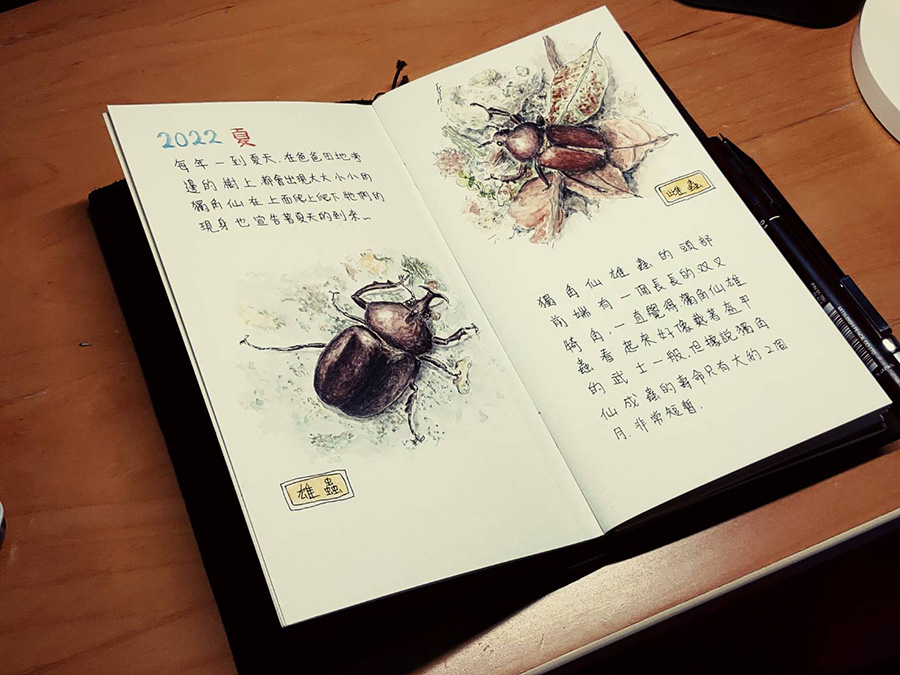 2022 夏
每年一到夏天,在爸爸田地旁
邊的樹上都會出現大大小小的
獨角仙在上面爬上爬下牠們的
現身也宣告著夏天的到來~
雄蟲
雌蟲
獨角仙雄蟲的頭部
前端有一個長長的双叉
犄角,一直覺得獨角仙雄
蟲看起來好像戴著盔甲
的武士一般,但據說獨角
仙成蟲的壽命只有大約2個
月非常短暫.